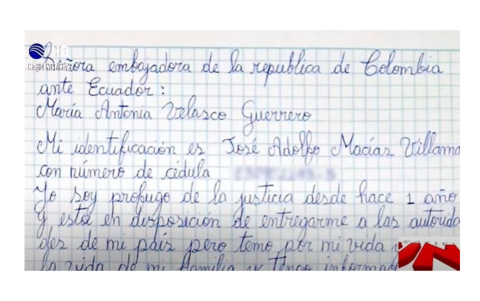 Señora embajadora de la republica de Colombia
ante Ecuador:
María Antonia Velasco Guerrero
Mi identificación es José Adolfo Macías Villama
con número de cédula
Yo soy profugo de la justicia desde hace 1 año
y esto en disposición de entregarme a las autorida
des de mi país pero temo por mi vida
la vida de mi familia y tengo informad